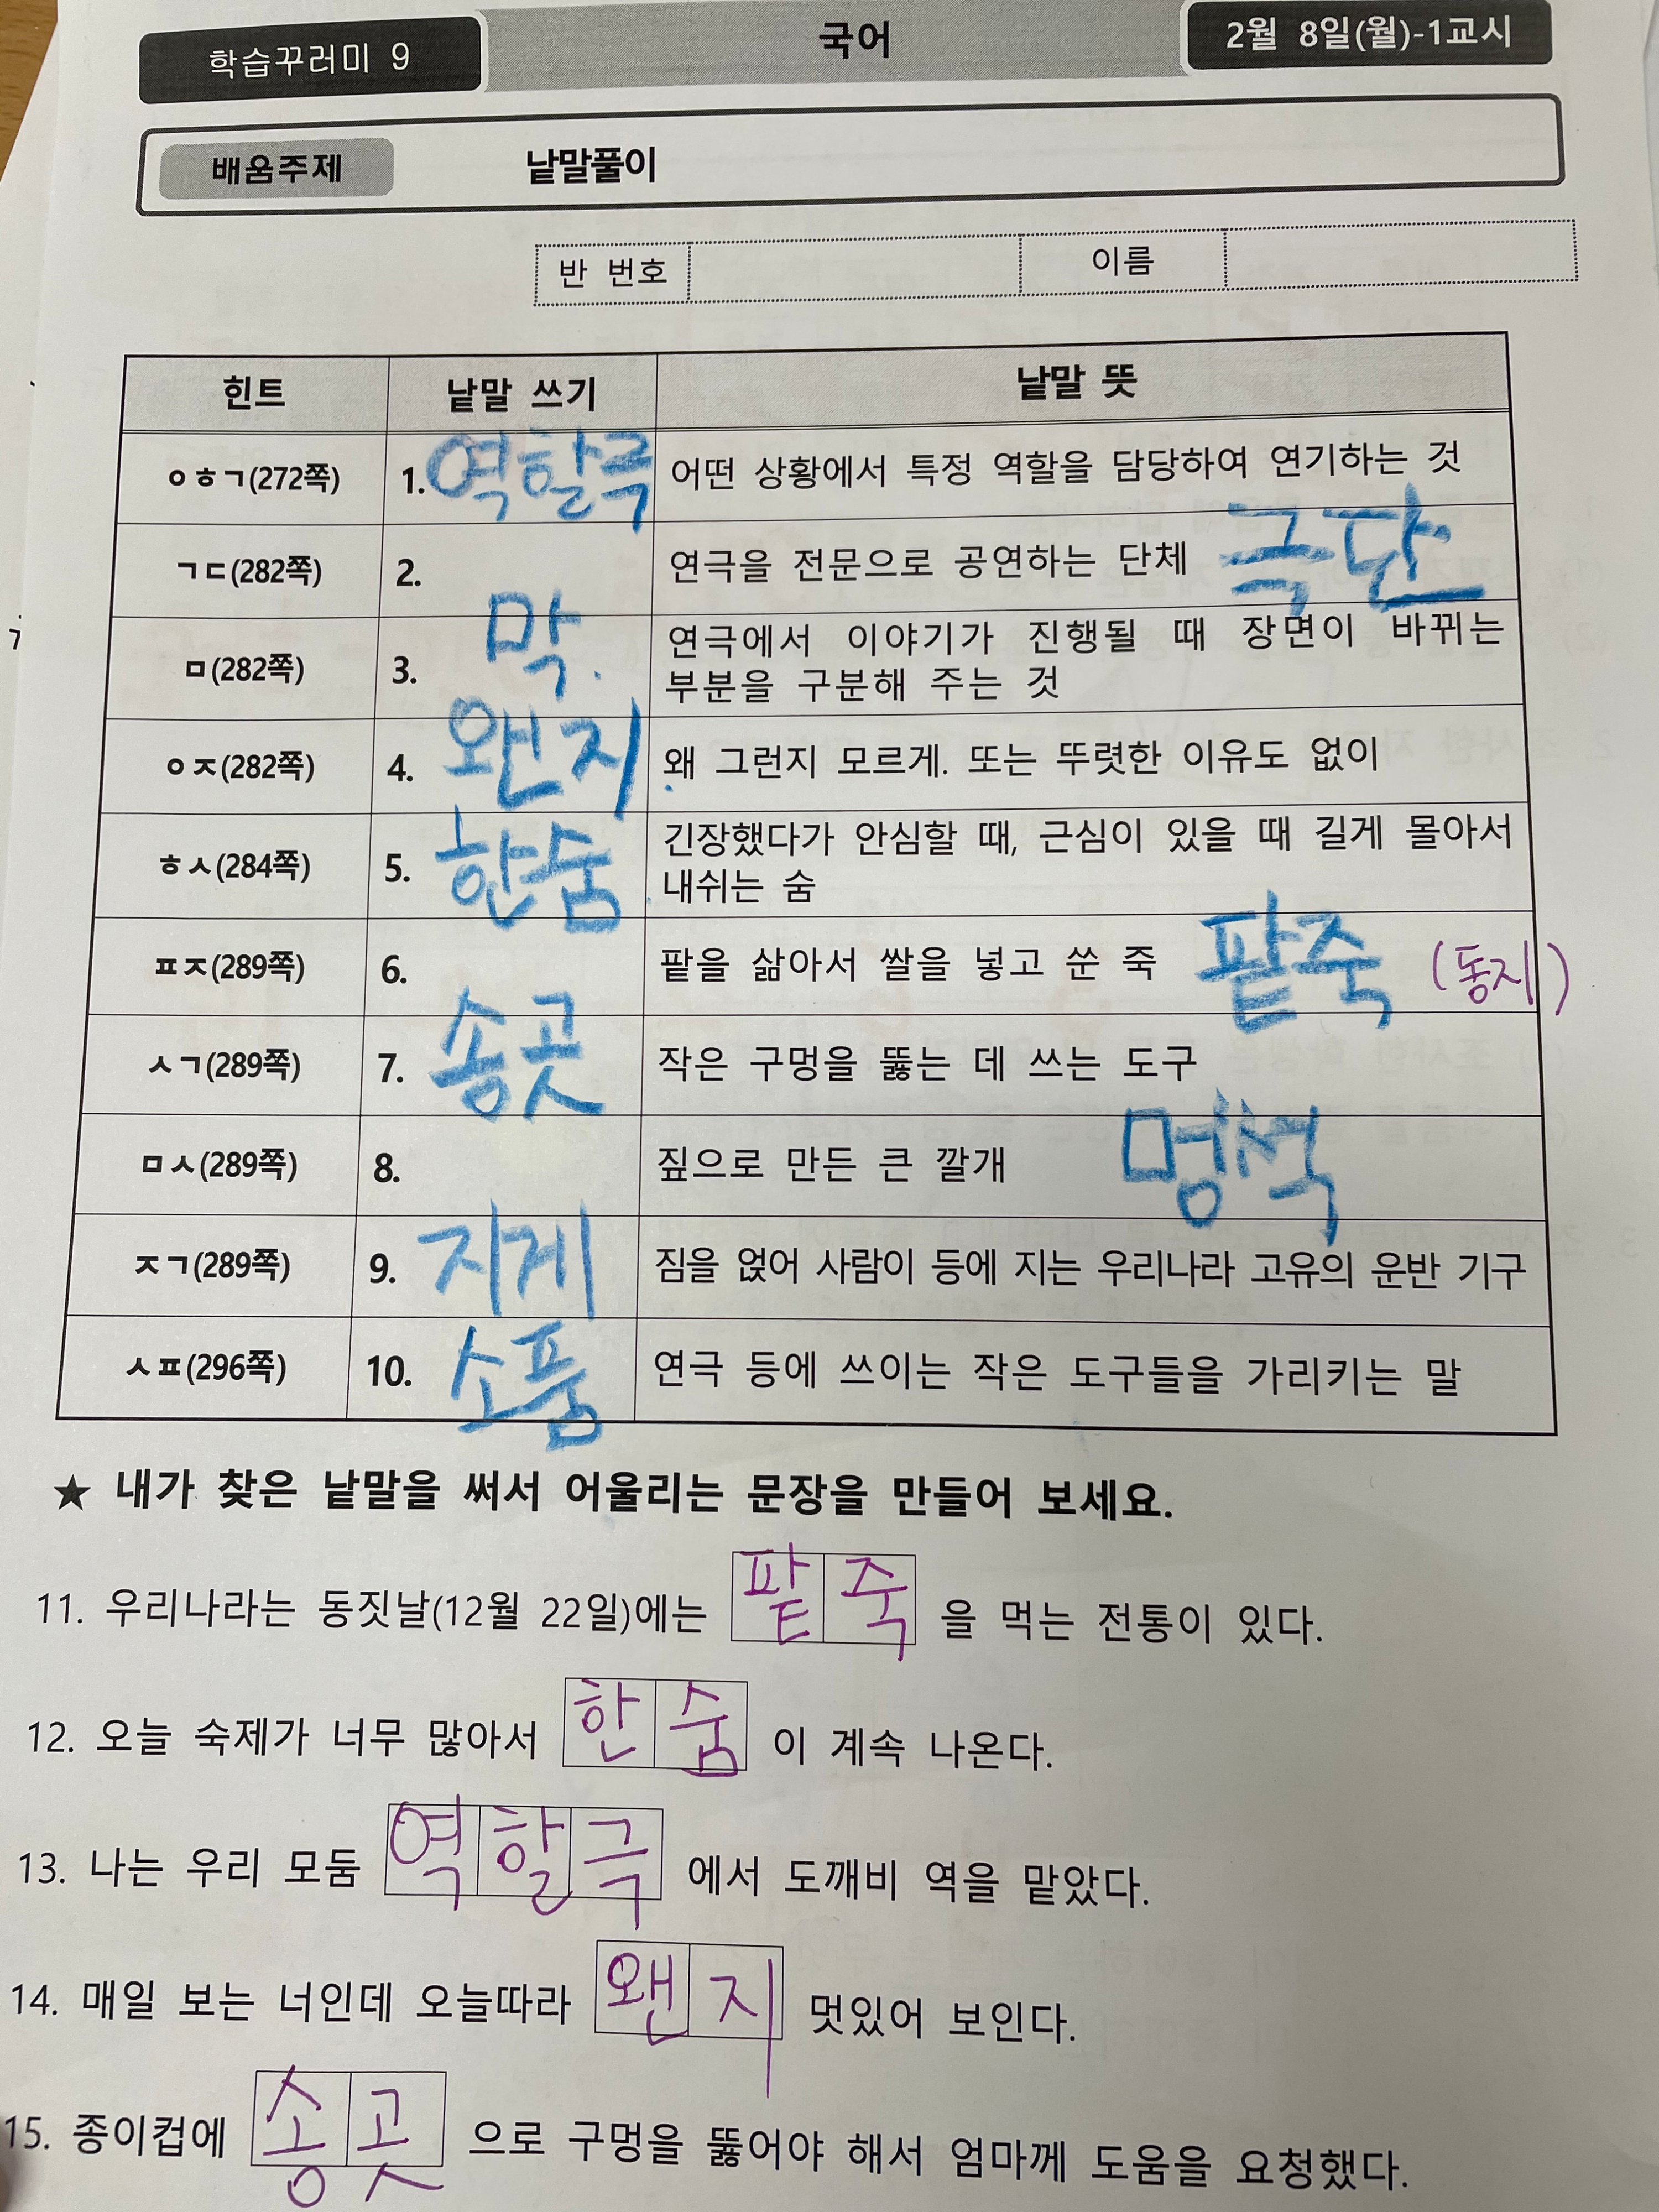 학습꾸러미 9 국어 2월 8일(월)-1교시
배움주제 낱말풀이
반 번호 이름
힌트 낱말 쓰기 낱말 뜻
ㅇㅎㄱ(272쪽) 1. 역할극 어떤 상황에서 특정 역할을 담당하여 연기하는 것
ㄱㄷ(282쪽) 2. 연극을 전문으로 공연하는 단체 극단
ㅁ(282쪽) 3. 막. 연극에서 이야기가 진행될 때 장면이 바뀌는
부분을 구분해 주는 것
ㅇㅈ(282쪽) 4. 왠지 왜 그런지 모르게. 또는 뚜렷한 이유도 없이
ㅎㅅ(284쪽) 5. 한숨 긴장했다가 안심할 때, 근심이 있을 때 길게 몰아서
내쉬는 숨
ㅍㅈ(289쪽) 6. 팥을 삶아서 쌀을 넣고 쑨 죽 팥죽 (동지)
ㅅㄱ(289쪽) 7. 송곳 작은 구멍을 뚫는 데 쓰는 도구
ㅁㅅ(289쪽) 8. 짚으로 만든 큰 깔개 멍석
ㅈㄱ(289쪽) 9. 지게 짐을 얹어 사람이 등에 지는 우리나라 고유의 운반 기구
ㅅㅍ(296쪽) 10. 소품 연극 등에 쓰이는 작은 도구들을 가리키는 말
★ 내가 찾은 낱말을 써서 어울리는 문장을 만들어 보세요.
11. 우리나라는 동짓날(12월 22일)에는 팥죽 을 먹는 전통이 있다.
12. 오늘 숙제가 너무 많아서 한숨 이 계속 나온다.
13. 나는 우리 모둠 역할극 에서 도깨비 역을 맡았다.
14. 매일 보는 너인데 오늘따라 왠지 멋있어 보인다.
15. 종이컵에 송곳 으로 구멍을 뚫어야 해서 엄마께 도움을 요청했다.